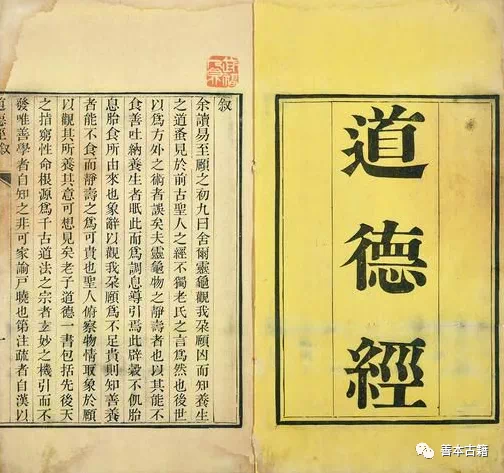 道德經
叙
余讀易至頤之初九曰舍爾靈龜觀我朶頤因而知養生
之道蚤見於前古聖人之經不獨老氏之言爲然也後世
以爲方外之術者誤矣夫靈龜物之靜壽者也以其能不
食善吐納養生者眂此而爲調息導引焉此辟穀不飢胎
息胎食所由來也象辭以觀我朶頤爲不足貴則知善養
者能不食而靜壽之爲可貴也聖人俯察物情取象於頤
以觀其所養其意可想見矣老子道德一書包括先後天
之窮性命根源爲千古道法之宗者玄妙之機引而不
發唯善學者自知之非可家諭戶曉也第注疏者自漢以
道德經叙
一
善本古籍